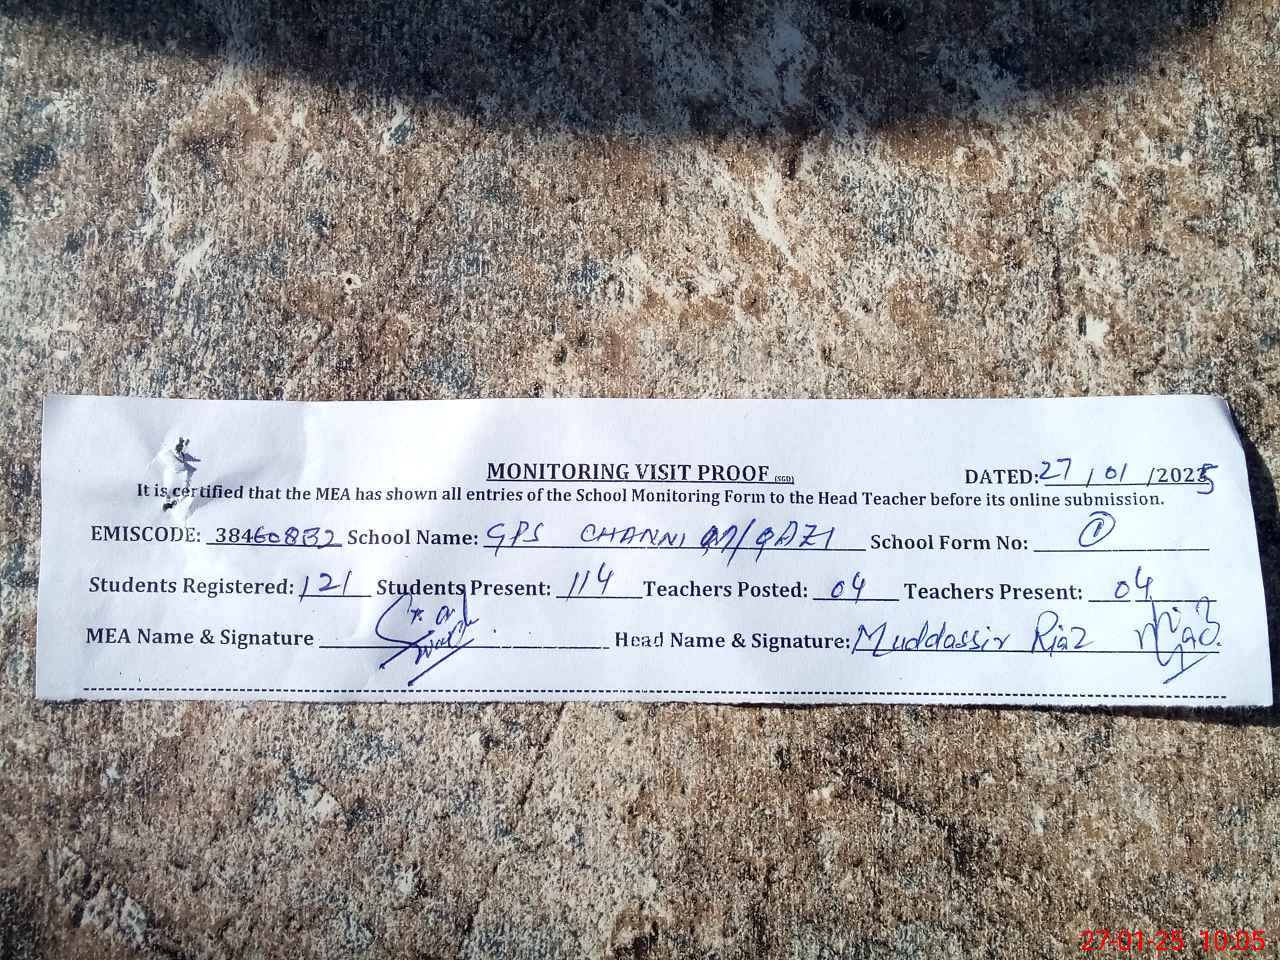 MONITORING VISIT PROOF (SGD) DATED: 27 / 01 / 2025
It is certified that the MEA has shown all entries of the School Monitoring Form to the Head Teacher before its online submission.
EMISCODE: 384608B2 School Name: GPS CHANNI QAZI School Form No: 1
Students Registered: 121 Students Present: 114 Teachers Posted: 04 Teachers Present: 04
MEA Name & Signature Head Name & Signature: Muddassir Riaz
27-01-25 10:05